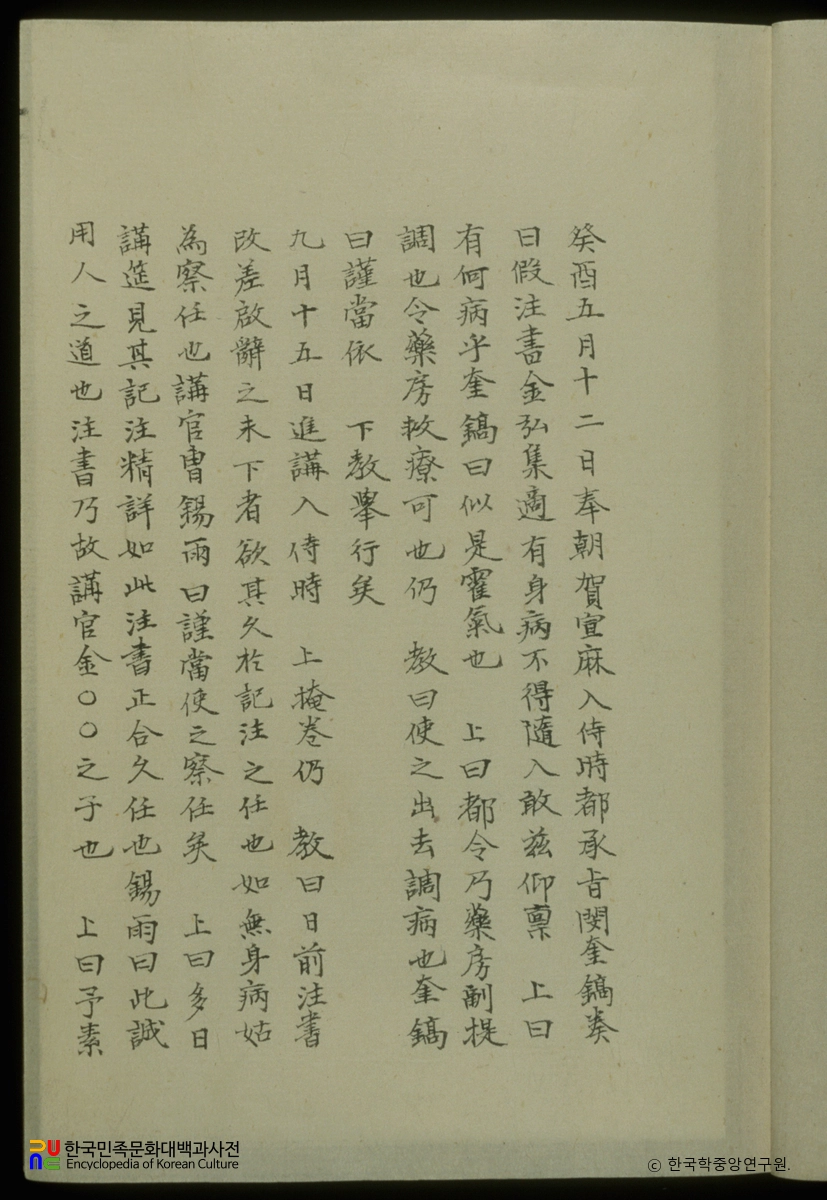 癸酉五月十二日奉朝賀宣麻入侍時都承旨閔奎鎬奏
曰假注書金弘集適有身病不得隨入敢玆仰稟　上曰
有何病乎奎鎬曰似是霍氣也　上曰都令乃藥房副提
調也令藥房救療可也仍　教曰使之出去調病也奎鎬
曰謹當依　下教擧行矣
九月十五日進講入侍時　上掩卷仍　教曰日前注書
改差啟辭之未下者欲其久於記注之任也如無身病姑
為察任也講官曺錫雨曰謹當使之察任矣　上曰多日
講筵見其記注精詳如此注書正合久任也錫雨曰此誠
用人之道也注書乃故講官金〇〇之子也　上曰予素
한국민족문화대백과사전
Encyclopedia of Korean Culture
© 한국학중앙연구원.